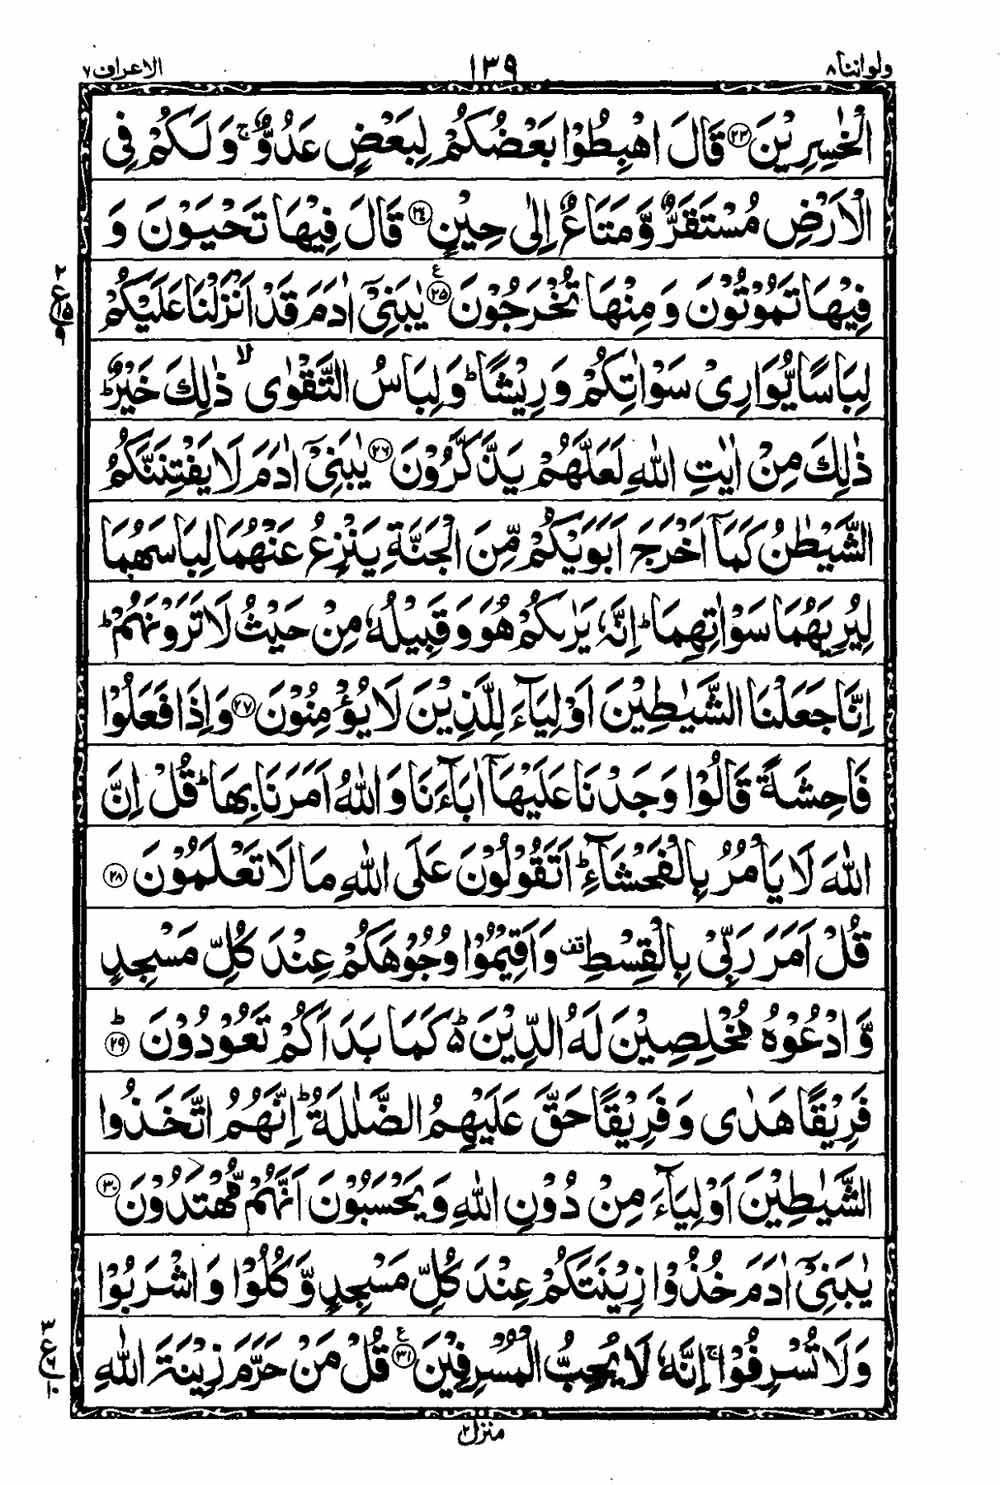 ولواننا ٨ ١٣٩ الاعراف ٧
الْخٰسِرِيْنَ ﴿٢٣﴾ قَالَ اهْبِطُوْا بَعْضُكُمْ لِبَعْضٍ عَدُوٌّ ۚ وَلَكُمْ فِى
الْاَرْضِ مُسْتَقَرٌّ وَّمَتَاعٌ اِلٰى حِيْنٍ ﴿٢٤﴾ قَالَ فِيْهَا تَحْيَوْنَ وَ
فِيْهَا تَمُوْتُوْنَ وَمِنْهَا تُخْرَجُوْنَ ﴿٢٥﴾ ع يٰبَنِىْٓ اٰدَمَ قَدْ اَنْزَلْنَا عَلَيْكُمْ
٢ ع ١٥ ٩
لِبَاسًا يُّوَارِىْ سَوْاٰتِكُمْ وَرِيْشًا ؕ وَلِبَاسُ التَّقْوٰى ۙ ذٰلِكَ خَيْرٌ ؕ
ذٰلِكَ مِنْ اٰيٰتِ اللّٰهِ لَعَلَّهُمْ يَذَّكَّرُوْنَ ﴿٢٦﴾ يٰبَنِىْٓ اٰدَمَ لَا يَفْتِنَنَّكُمُ
الشَّيْطٰنُ كَمَآ اَخْرَجَ اَبَوَيْكُمْ مِّنَ الْجَنَّةِ يَنْزِعُ عَنْهُمَا لِبَاسَهُمَا
لِيُرِيَهُمَا سَوْاٰتِهِمَا ؕ اِنَّهٗ يَرٰىكُمْ هُوَ وَقَبِيْلُهٗ مِنْ حَيْثُ لَا تَرَوْنَهُمْ ؕ
اِنَّا جَعَلْنَا الشَّيٰطِيْنَ اَوْلِيَآءَ لِلَّذِيْنَ لَا يُؤْمِنُوْنَ ﴿٢٧﴾ وَاِذَا فَعَلُوْا
فَاحِشَةً قَالُوْا وَجَدْنَا عَلَيْهَآ اٰبَآءَنَا وَاللّٰهُ اَمَرَنَا بِهَا ؕ قُلْ اِنَّ
اللّٰهَ لَا يَاْمُرُ بِالْفَحْشَآءِ ؕ اَتَقُوْلُوْنَ عَلَى اللّٰهِ مَا لَا تَعْلَمُوْنَ ﴿٢٨﴾
قُلْ اَمَرَ رَبِّىْ بِالْقِسْطِ قف وَاَقِيْمُوْا وُجُوْهَكُمْ عِنْدَ كُلِّ مَسْجِدٍ
وَّادْعُوْهُ مُخْلِصِيْنَ لَهُ الدِّيْنَ ؕ۬ كَمَا بَدَاَكُمْ تَعُوْدُوْنَ ؕ﴿٢٩﴾
فَرِيْقًا هَدٰى وَفَرِيْقًا حَقَّ عَلَيْهِمُ الضَّلٰلَةُ ؕ اِنَّهُمُ اتَّخَذُوا
الشَّيٰطِيْنَ اَوْلِيَآءَ مِنْ دُوْنِ اللّٰهِ وَيَحْسَبُوْنَ اَنَّهُمْ مُّهْتَدُوْنَ ﴿٣٠﴾
يٰبَنِىْٓ اٰدَمَ خُذُوْا زِيْنَتَكُمْ عِنْدَ كُلِّ مَسْجِدٍ وَّكُلُوْا وَاشْرَبُوْا
وَلَا تُسْرِفُوْا ۚ اِنَّهٗ لَا يُحِبُّ الْمُسْرِفِيْنَ ﴿٣١﴾ ع قُلْ مَنْ حَرَّمَ زِيْنَةَ اللّٰهِ
٣ ع ٦ ١٠
منزل ٢